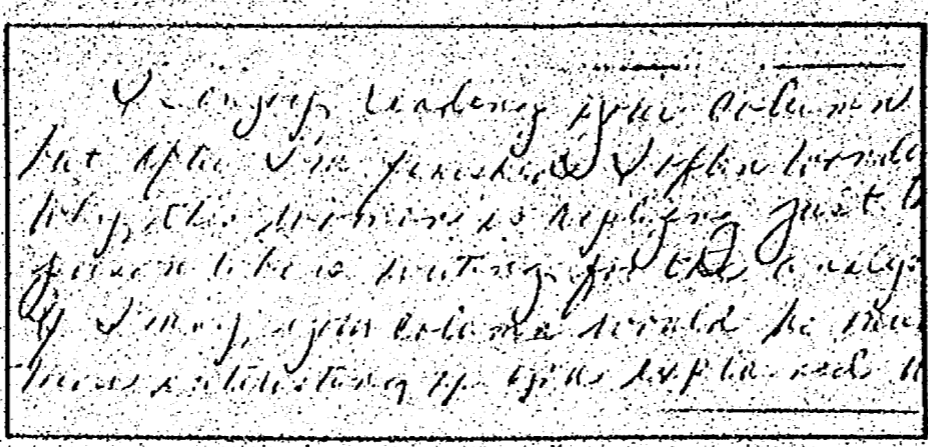 I enjoy reading your column
but after I'm finished I often wonde
why this woman is replying just to
person who is writing for the analys
If I may, your column would be muc
more interesting if you explained